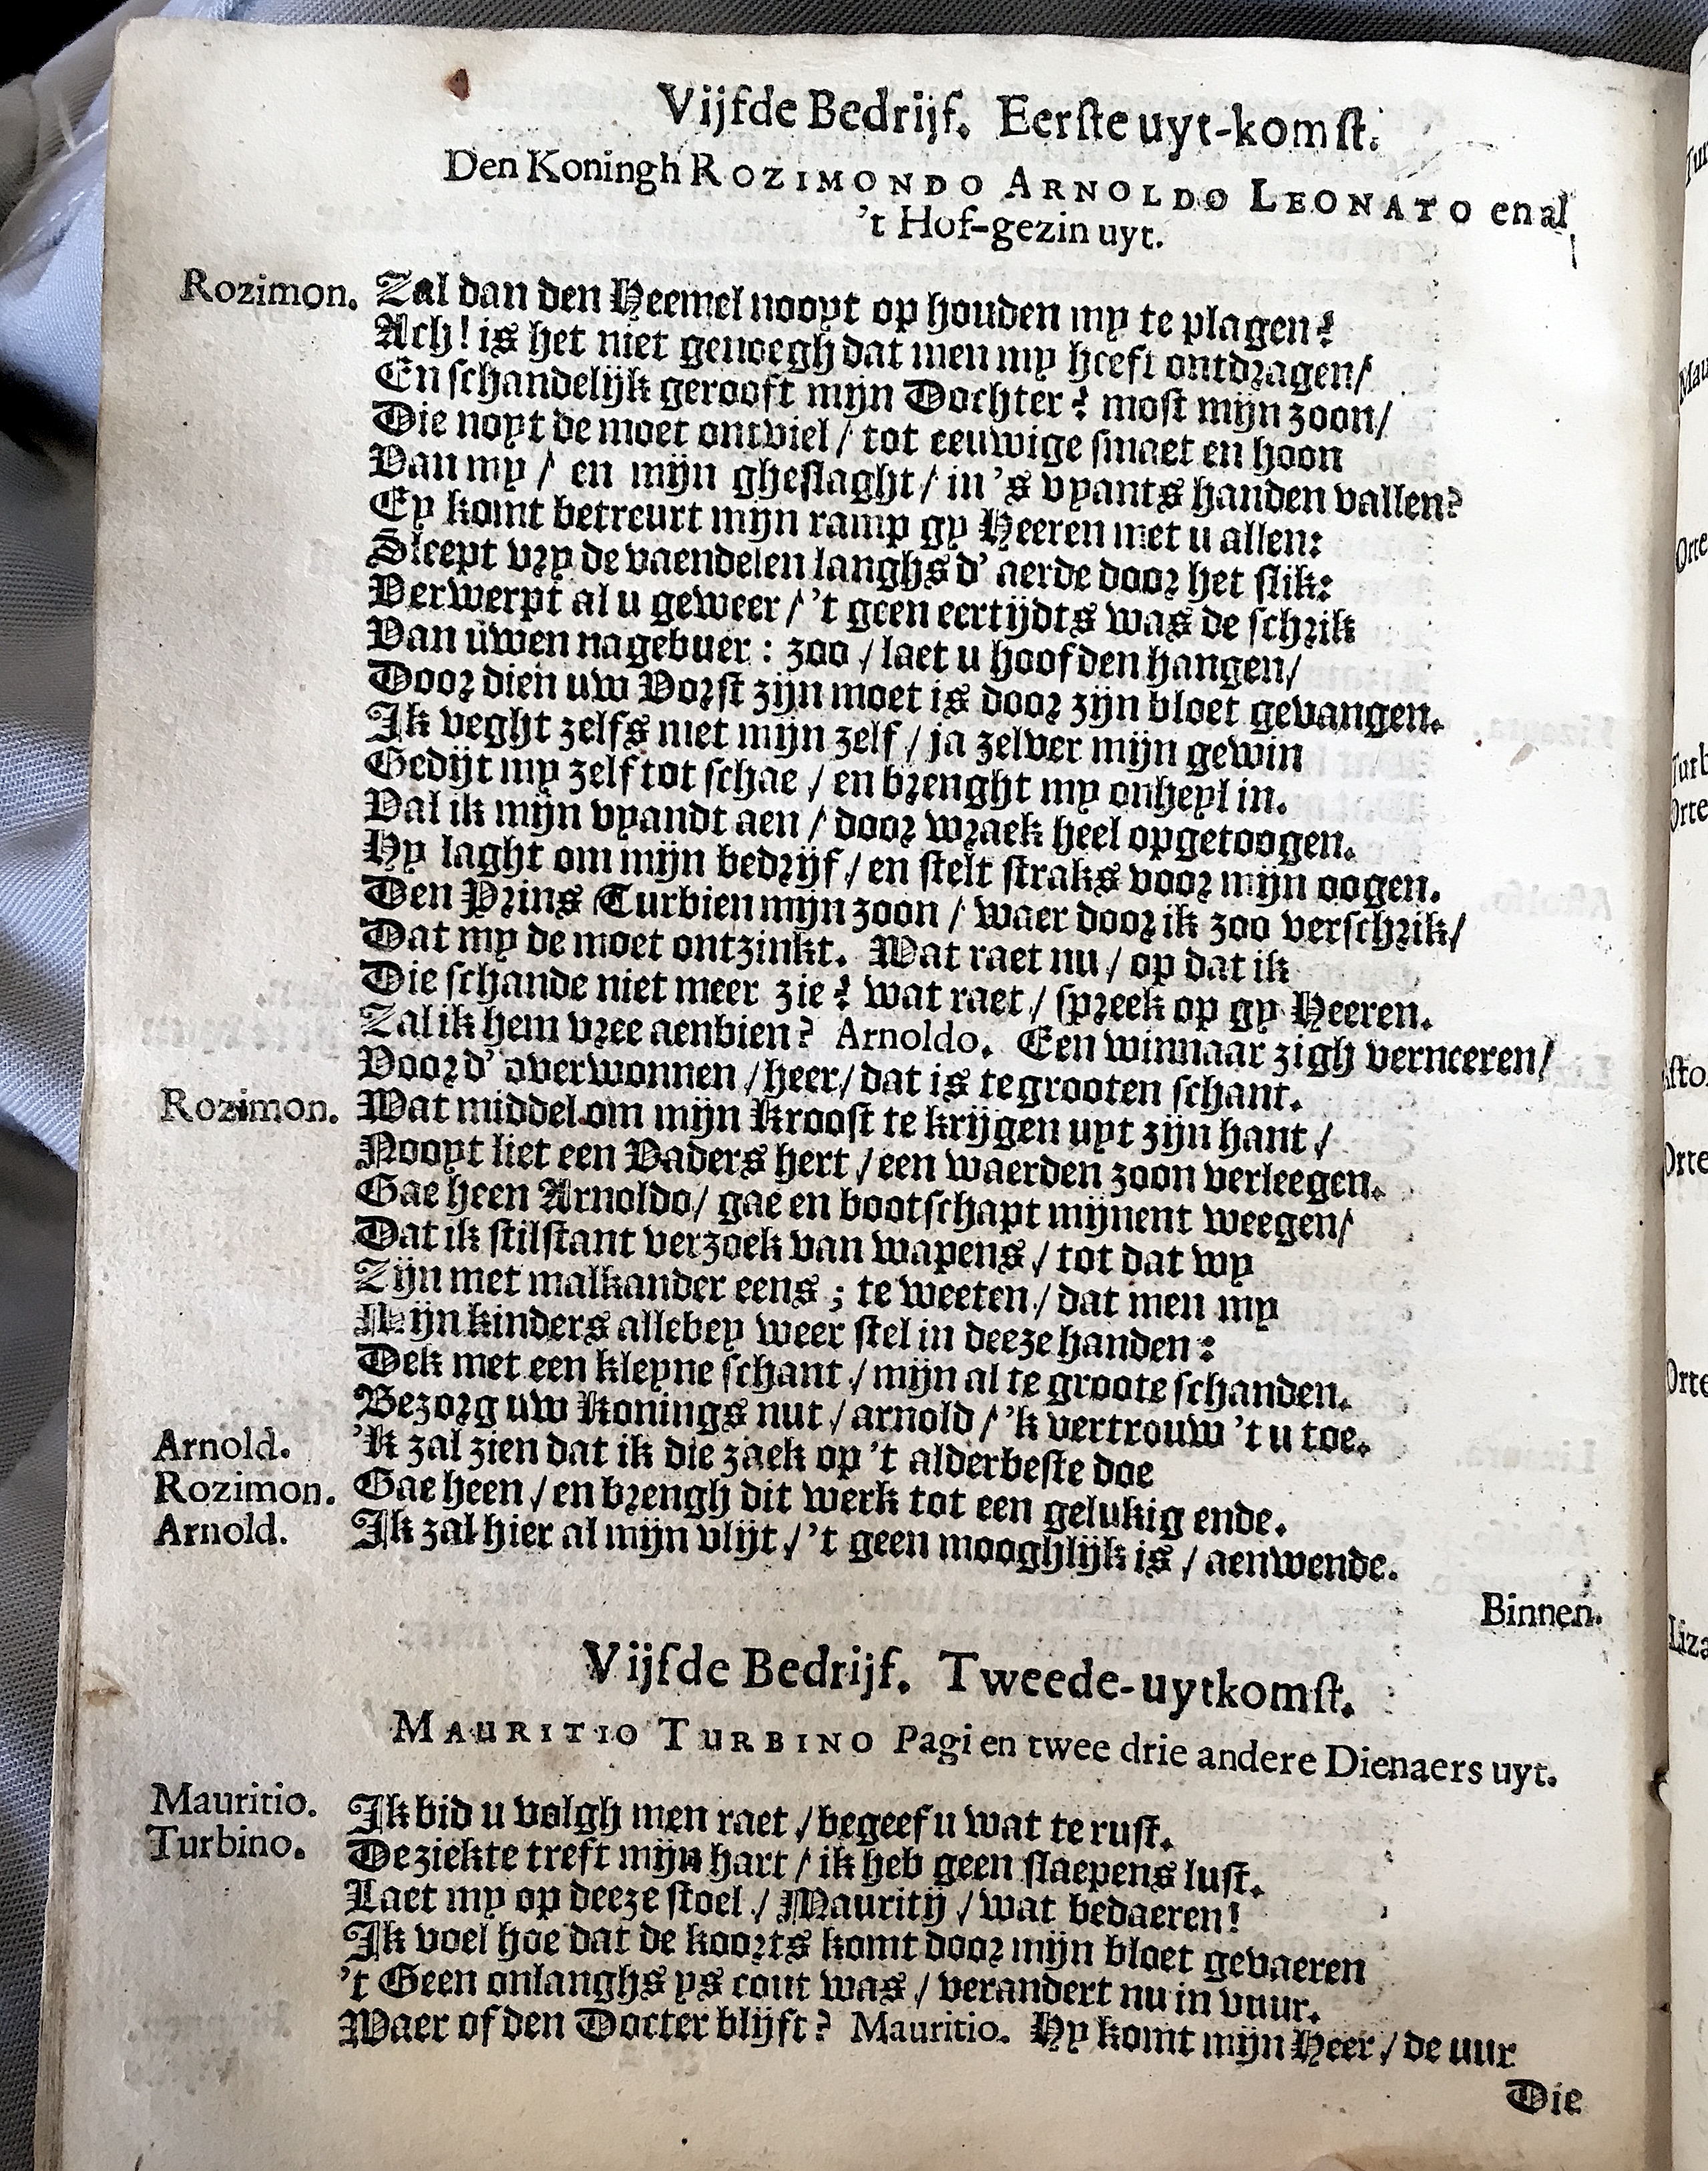 Vijfde Bedrijf. Eerste uyt-komst.
Den Koningh ROZIMONDO ARNOLDO LEONATO en al
't Hof-gezin uyt.
Rozimon. Zal dan den Heemel nooyt op houden my te plagen?
Ach! is het niet genoegh dat men my heeft ontdragen/
En schandelijk gerooft mijn Dochter? most mijn zoon/
Die noyt de moet ontviel / tot eeuwige smaet en hoon
Van my / en mijn gheslaght / in 's vyants handen vallen?
Ey komt betreurt mijn ramp gy Heeren met u allen:
Sleept vry de vaendelen langhs d' aerde door het slik:
Verwerpt al u geweer / 't geen eertijdts was de schrik
Van uwen nagebuer: zoo / laet u hoofden hangen/
Door dien uw Vorst zijn moet is door zijn bloet gevangen.
Ik veght zelfs met mijn zelf / ja zelver mijn gewin
Gedijt my zelf tot schae / en brenght my onheyl in.
Val ik mijn vyandt aen / door wraek heel opgetoogen.
Hy laght om mijn bedrijf / en stelt straks voor mijn oogen.
Den Prins Turbien mijn zoon / waer door ik zoo verschrik/
Dat my de moet ontzinkt. Wat raet nu / op dat ik
Die schande niet meer zie? wat raet / spreek op gy Heeren.
Zal ik hem vree aenbien? Arnoldo. Een winnaar zigh verneeren/
Voor d' overwonnen / heer / dat is te grooten schant.
Rozimon. Wat middel om mijn Kroost te krijgen uyt zijn hant /
Nooyt liet een Vaders hert / een waerden zoon verleegen.
Gae heen Arnoldo / gae en bootschapt mijnent weegen/
Dat ik stilstant verzoek van wapens / tot dat wy
Zijn met malkander eens; te weeten / dat men my
Mijn kinders allebey weer stel in deeze handen:
Dek met een kleyne schant / mijn al te groote schanden.
Bezorg uw Konings nut / arnold / 'k vertrouw 't u toe.
Arnold. 'K zal zien dat ik die zaek op 't alderbeste doe
Rozimon. Gae heen / en brengh dit werk tot een gelukig ende.
Arnold. Ik zal hier al mijn vlijt / 't geen mooghlijk is / aenwende.
Binnen.
Vijfde Bedrijf. Tweede-uytkomst.
MAURITIO TURBINO Pagi en twee drie andere Dienaers uyt.
Mauritio. Ik bid u volgh men raet / begeef u wat te rust.
Turbino. De ziekte treft mijn hart / ik heb geen slaepens lust.
Laet my op deeze stoel / Mauritij / wat bedaeren!
Ik voel hoe dat de koorts komt door mijn bloet gevaeren
't Geen onlanghs ys cout was / verandert nu in vuur.
Waer of den Docter blijft? Mauritio. Hy komt mijn Heer / de uur
Die